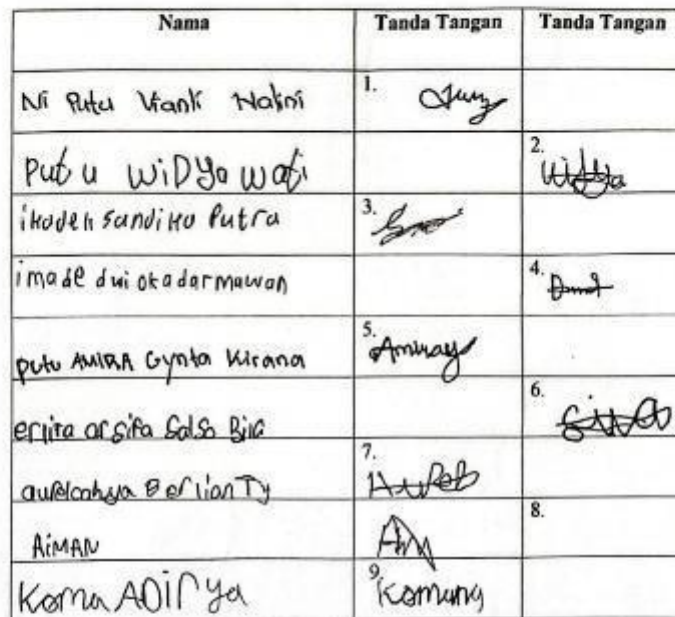 Nama Tanda Tangan Tanda Tangan
Ni Putu Vianti Natini 1.
Putu WiDYa wati 2. Widya
ikadek sandika Putra 3.
imade dwi oka darmawan 4.
putu AMIRA Gynta Kirana 5. Amiray
erlita arsifa Salsa Bila 6.
Berlian Ty 7.
AiMAN 8.
Koma ADiTya 9. Komang